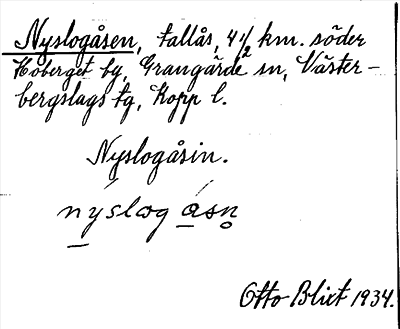 Nyslogåsen, tallås, 4 1/2 km. söder
Hoberget by, Grangärde sn, Väster-
bergslags tg, Kopp l.
Nyslogåsin.
nýslog ásn̥
Otto Blixt 1934.